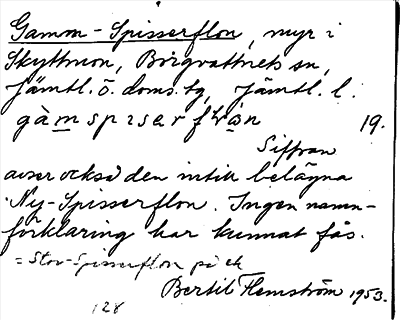 Gamm-Spisserflon, myr i
Skyttmon, Borgvattnets sn,
Jämtl. ö. doms. tg, Jämtl. l.
19.
Siffran
avser också den intill belägna
Ny-Spisserflon. Ingen namn-
förklaring har kunnat fås.
= Stor-Spisserflon på ek
Bertil Flemström 1953.
128